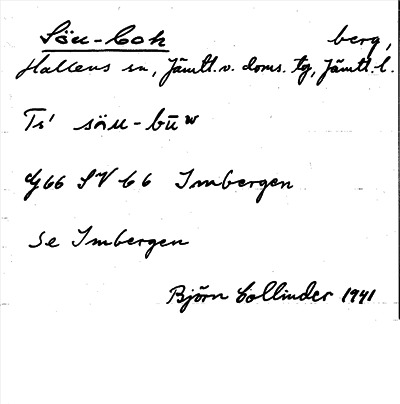 Söu-bok berg,
Hallens sn, Jämtl. v. doms. tg, Jämtl. l.
Ts'
Imbergen
Se Imbergen
Björn Collinder 1941